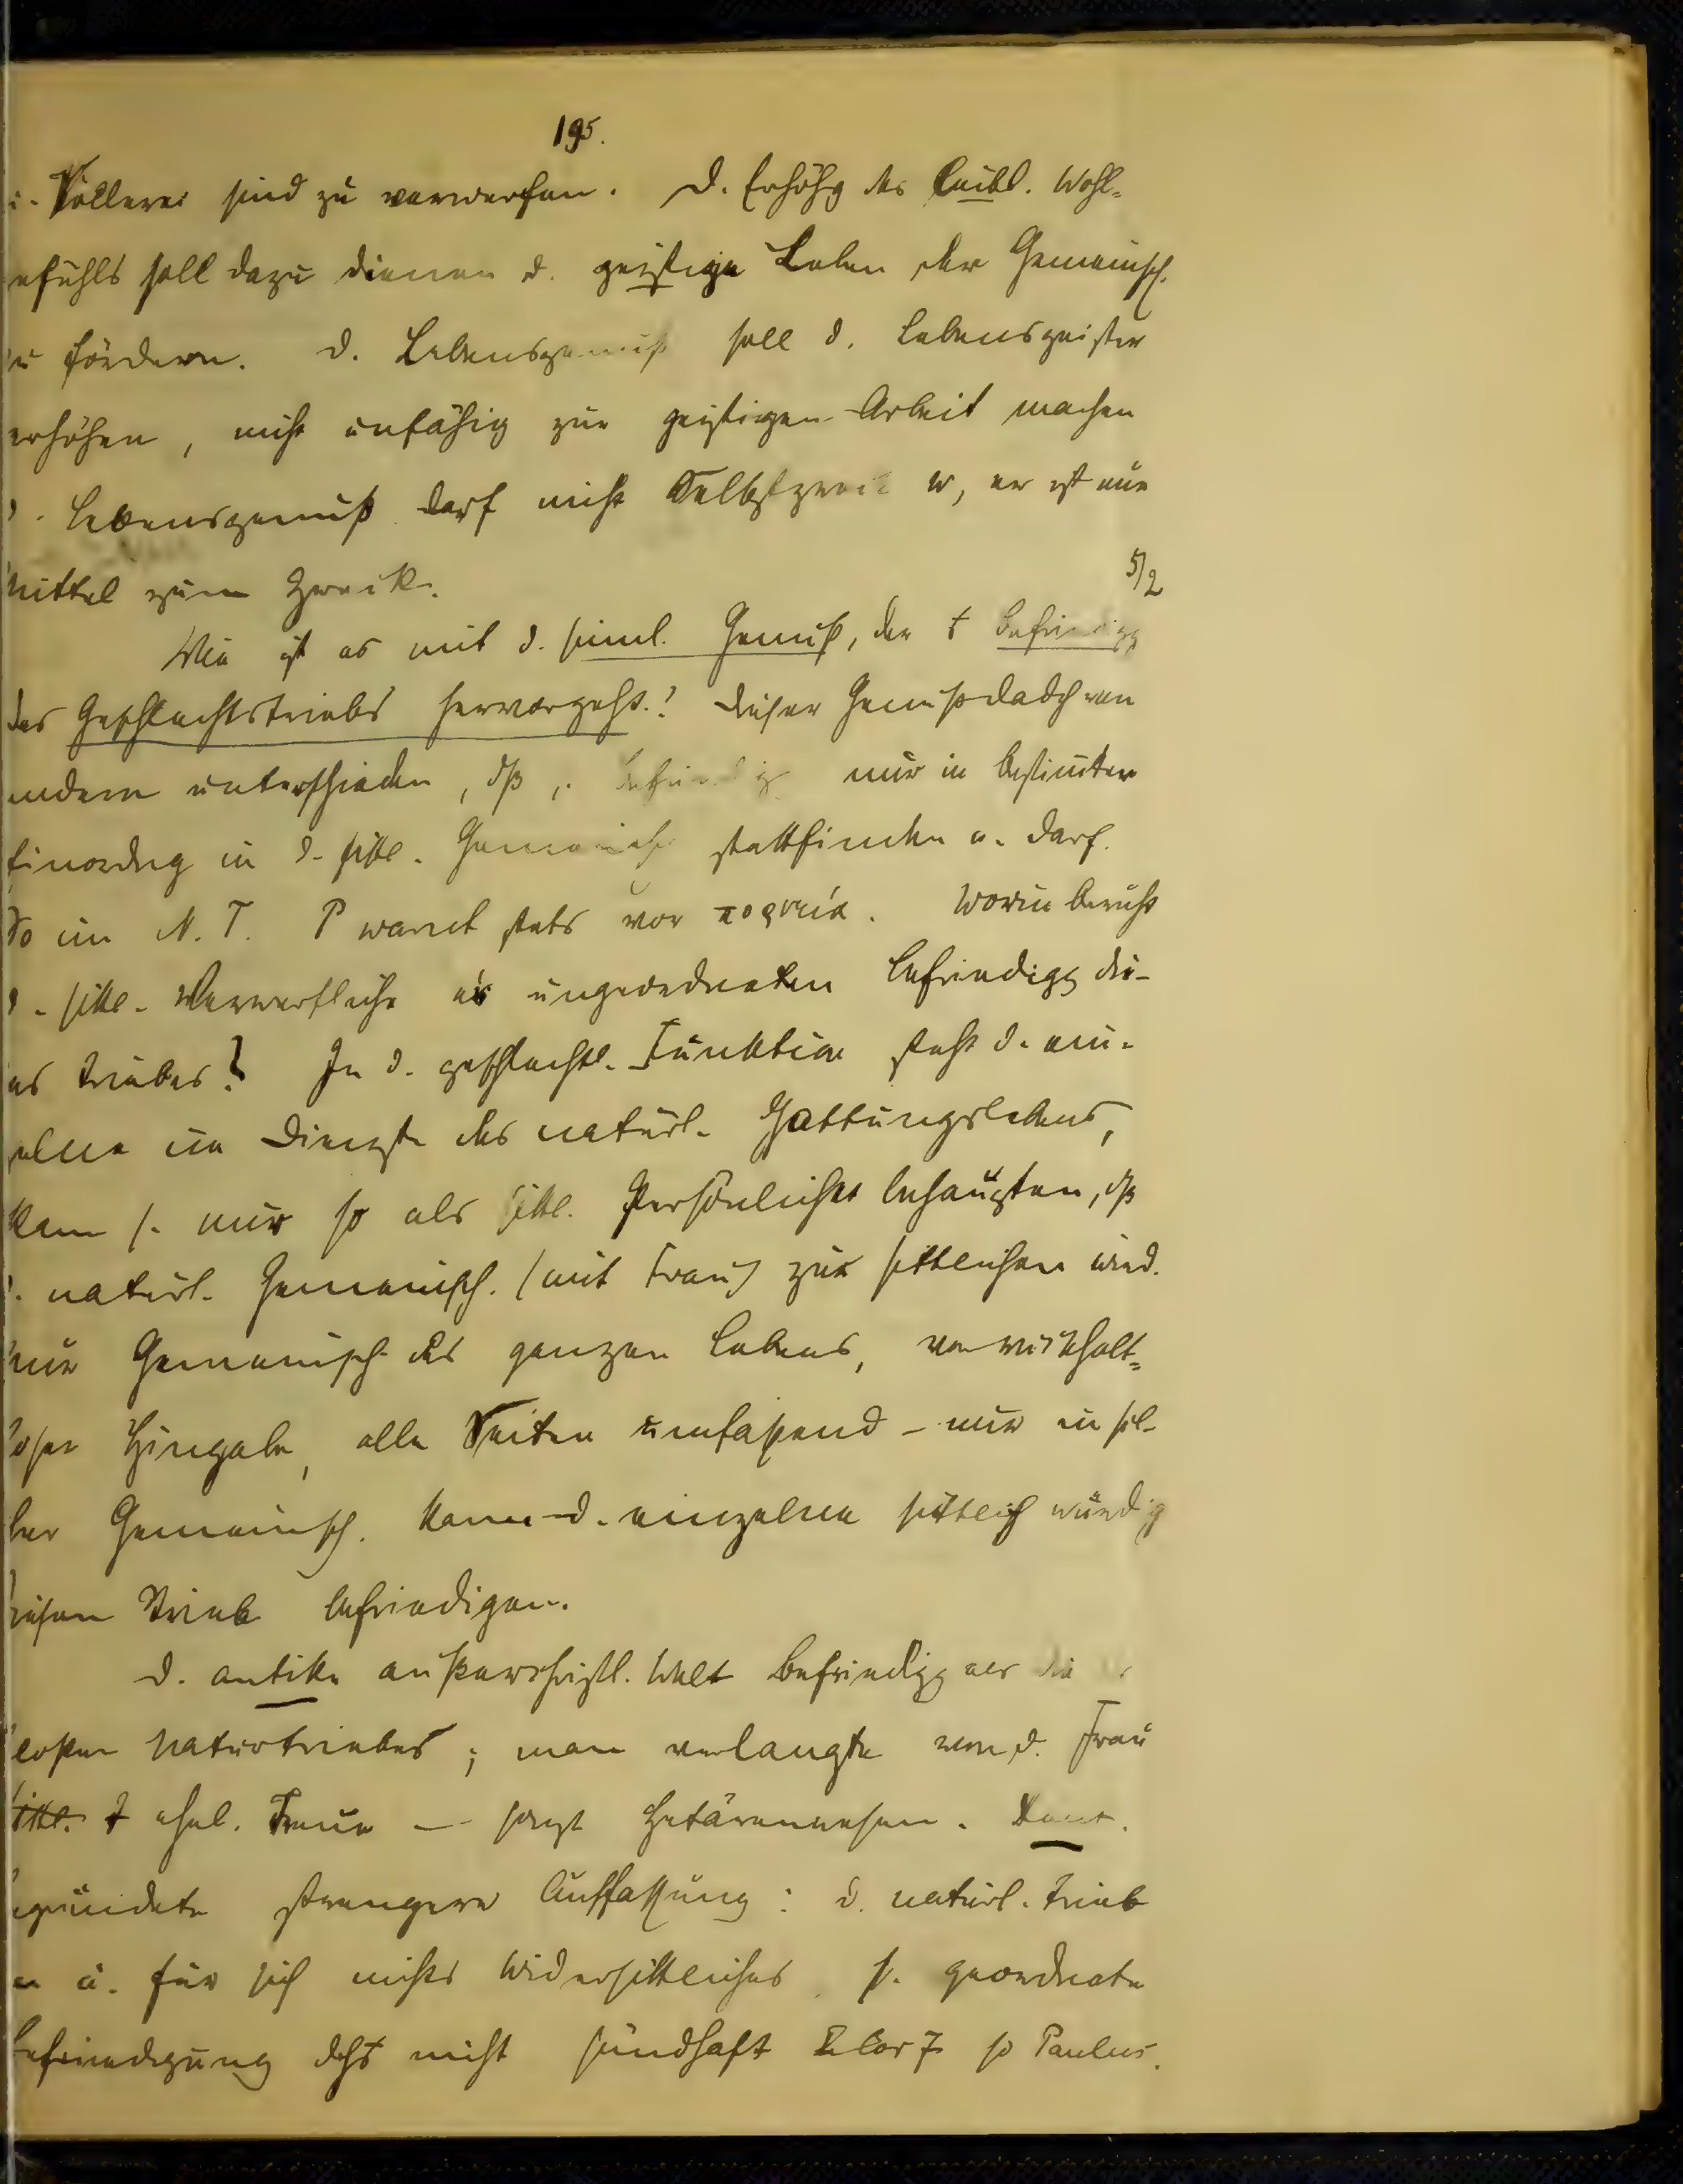 195.
u. Völlerei sind zu verwerfen. D. Erhöhg des leibl. Wohl-
efühls soll dazu dienen d. geistige Leben der Gemeinsch.
zu fördern. D. Lebensgenuß soll d. Lebensgeister
erhöhen, nicht unfähig zur geistigen Arbeit machen
d. Lebensgenuß darf nicht Selbstzweck w, er ist nur
Mittel zum Zweck.
5/2
Wie ist es mit d. sinnl. Genuß, der Befriedigg
des Geschlechtstriebs hervorgeht? Dieser Genuß dadch von
andern unterschieden, dß Befriedig nur in bestimter
Einordng in d. sittl. Gemeinsch stattfinden u. darf.
So im N. T. P warnt stets vor πορνεία. Worin beruht
d. sittl. Verwerfliche er ungeordneten Befriedigg die-
es Triebes? In d. geschlechtl. Funktion steht d. ein-
zelne im Dienste des natürl. Gattungslebens,
kann s. nur so als sittl. Persönlichkt behaupten, dß
d. natürl. Gemeinsch. (mit Frau) zur sittlichen wird.
nur Gemeinsch des ganzen Lebens, von rückhalt-
loser Hingabe, alle Seiten umfaßend – nur in sol-
cher Gemeinsch. kann d. einzelne sittlich würdig
diesen Trieb befriedigen.
D. antike außerchristl. Welt Befriedigg als die
loßen Naturtriebes; man verlangte von d. Frau
sittl. ehel. Treue — sonst Hetärenwesen.
egründete strengere Auffassung: d. natürl. Trieb
an u. für sich nichts Widersittliches s. geordnete
Befriedigung dchs nicht sündhaft Cor 7 so Paulus.